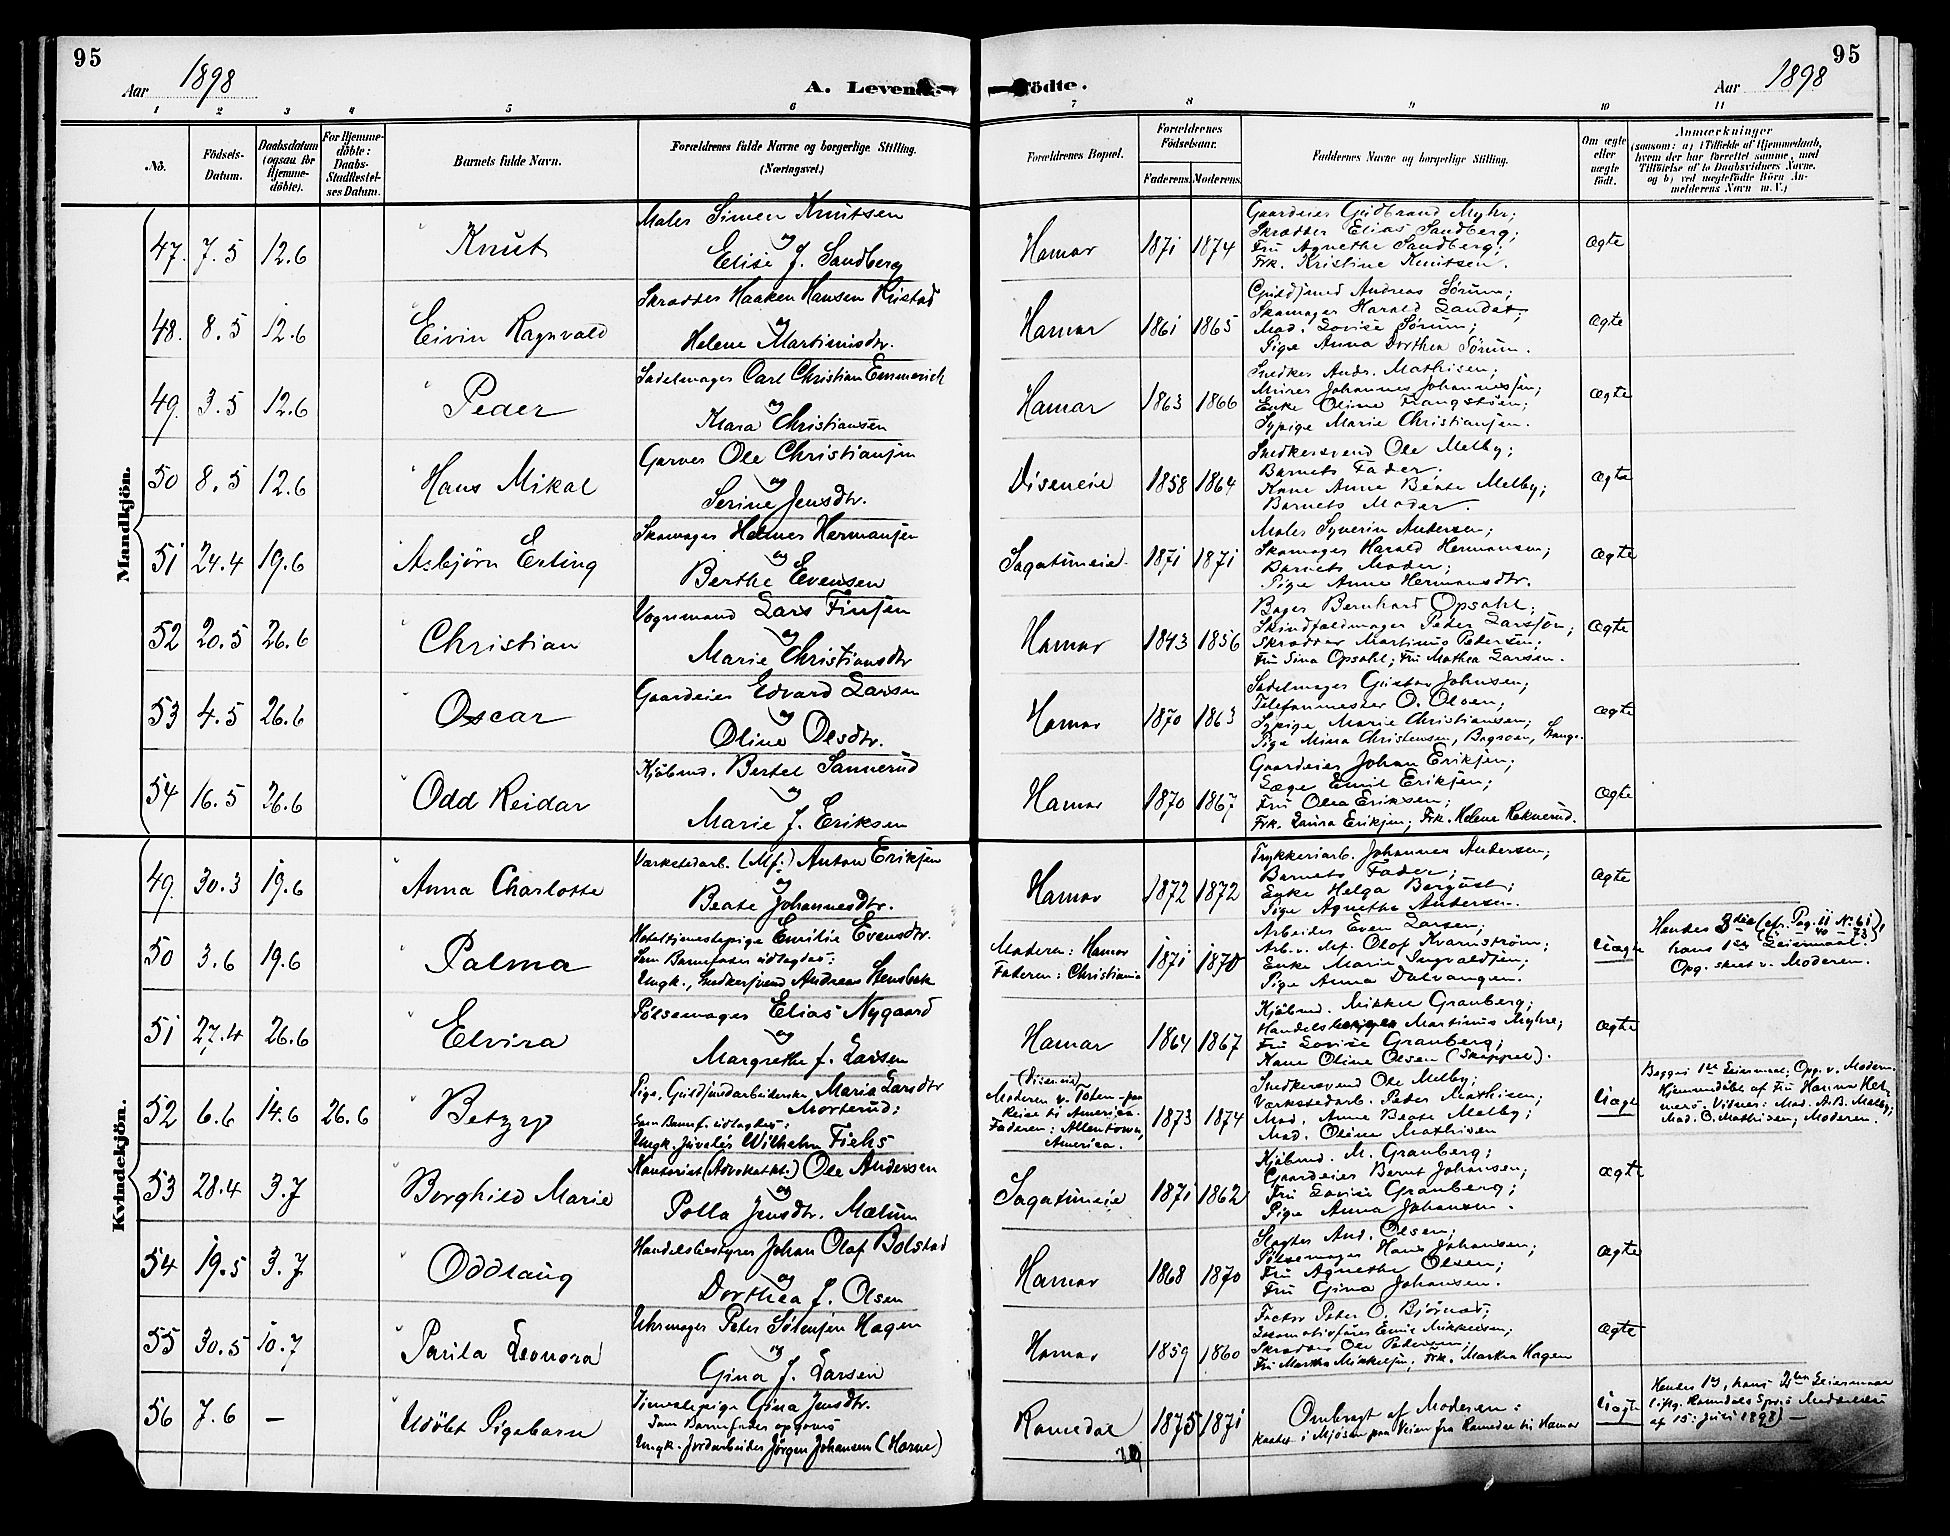 95
Aar 1898
A. Levende
Födte.
Aar 1898
95
1 2 3 4 5 6 7 8 9 10 11
No.
Födsels-Datum.
Daabsdatum (ogsaa for Hjemmedöbte).
For Hjemmedöbte: Daabs-Stadfæstelses Datum.
Barnets fulde Navn.
Forældrenes fulde Navne og borgerlige Stilling. (Næringsvei.)
Forældrenes Bopæl.
Forældrenes Födselsaar.
Faderens. Moderens.
Faddernes Navne og borgerlige Stilling.
Om ægte eller uægte födt.
Anmærkninger
(saasom: a) i Tilfælde af Hjemmedaab, hvem der har forrettet samme, med Tilföielse af to Daabsvidners Navne. og b) ved uægtefödte Börn Anmelderens Navn m. V.)
Mandkjön.
47. 7.5 12.6 Knut
Maler Simen Knutsen
og
Elise J. Sandberg
Hamar 1871 1874
Gaardeier Gudbrand Myhr;
Skrædder Elias Sandberg;
Fru Agnethe Sandberg;
Frk. Kristine Knutsen.
Ægte
48. 8.5 12.6 Eivin Ragnvald
Skrædder Haaken Hansen Kristad
og
Helene Martinusdtr.
Hamar 1861 1865
Guldsmed Andreas Sørum;
Skomager Harald
Mad. Lovise Sørum;
Pige Anna Dorthea Sørum.
Ægte
49. 3.5 12.6 Peder
Sadelmager Carl Christian Emmerich
og
Kara Christiansen
Hamar 1863 1866
Snedker Andr. Mathisen;
Murer Johannes Johannessen;
Enke Oline Frangstøen;
Sypige Marie Christiansen.
Ægte
50 8.5 12.6 Hans Mikal
Garver Ole Christiansen
og
Serine Jensdtr.
Diseneie 1858 1864
Snedkersvend Ole Melby;
Barnets Fader;
Kone Anne Beate Melby;
Barnets Moder.
Ægte
51 24.4 19.6 Asbjørn Erling
Skomager Helmer Hermansen
og
Berthe Evensen
Sagatuneie 1871 1871
Maler Syverin Andersen;
Skomager Harald Hermansen;
Barnets Moder;
Pige Anne Hermansdtr.
Ægte
52 20.5 26.6 Christian
Vognmand Lars Finsen
og
Marie Christiansdtr
Hamar 1843 1856
Bager Bernhard Opsahl;
Skindfeldmager Peder Larssøn;
Skrædder Martinus Pedersen;
Fru Sina Opsahl; Fru Mathea Larsen.
Ægte
53 4.5 26.6 Oscar
Gaardeier Edvard Larsen
og
Oline Olsdtr.
Hamar 1870 1863
Sadelmager Gustav Johnsen;
Telefonmester O. Olsen;
Sypige Marie Christiansen;
Pige Mina Christensen, Stange.
Ægte
54 16.5 26.6 Odd Reidar
Kjøbmd. Bertel Sannerud
og
Marie J. Eriksen
Hamar 1870 1867
Gaardeier Johan Eriksen;
Læge Emil Eriksen;
Fru Olea Eriksen;
Frk. Laura Eriksen; Frk. Helene Røknerud.
Ægte
Kvindekjön.
49. 30.3 19.6 Anna Charlotte
Værkstedarb. (Mf.) Anton Eriksen
og
Beate Johannesdtr.
Hamar 1872 1872
Trykkeriarb. Johannes Andersen;
Barnets Fader;
Enke Helga Bergust;
Pige Agnethe Andersen.
Ægte
50 3.6 19.6 Palma
Hoteltjenestepige Emilie Evensdtr.
Som Barnefader udlagdes:
Ungk., Snedkersvend Andreas Stensbak
Moderen: Hamar
Faderen: Christiania
1871 1870
Arbeider Even Larsen;
Arb. v. Mf. Olof Kvarnström;
Enke Marie Ingvaldsen;
Pige Anna Dalvangen.
Uægte
Hendes 3die (cfr. Pag. 11 N. 61)
hans 1ste Leiermaal.
Opg. skeet v. Moderen.
51 27.4 26.6 Elvira
Pølsemager Elias Nygaard
og
Margrethe J. Larsen
Hamar 1864 1867
Kjøbmd. Mikkel Granberg;
Martinus Myhre;
Fru Lovise Granberg;
Kone Oline Olsen (Skipper).
Ægte
52 6.6 14.6 26.6 Betzy
Pige, Guldsmedarbeiderske Maria Larsdtr
Morterud;
Som Barnef. udlagdes:
Ungk. Juveler Wilhelm Fichs
(Diseneie)
Moderen v. Toten - paa
Reise til America.
Faderen: Allentown,
America.
1873 1874
Snedkersvend Ole Melby;
Værkstedarb. Peder Mathisen;
Mad. Anne Beate Melby;
Mad. Oline Mathisen
Uægte
Begges 1ste Leiermaal; Opg. v. Moderen.
Hjemmedøbt af Fru Hanna
Vidner: Mad. A.B. Melby;
Mad. O. Mathisen; Moderen.
53 28.4 3.7 Borghild Marie
Kontorist (Advokatkt.) Ole Andersen
og
Polla Jensdtr. Mælum
Sagatuneie 1871 1862
Kjøbmd. M. Granberg;
Gaardeier Bernt Johansen;
Fru Lovise Granberg;
Pige Anna Johansen.
Ægte
54 19.5 3.7 Oddlaug
Handelsbestyrer Johan Olaf Bolstad
og
Dorthea J. Olsen
Hamar 1868 1870
Slagter And. Olsen;
Pølsemager Hans Johansen;
Fru Agnethe Olsen;
Fru Gina Johansen.
Ægte
55 30.5 10.7 Paula Leonora
Uhrmager Peter Sørensen Hagen
og
Gina J. Larsen
Hamar 1859 1860
Factor Peter O. Bjørnad;
Locomotivfører Emil Mikkelsen;
Skrædder Ole Pedersen;
Fru Martha Mikkelsen; Frk. Martha Hagen
Ægte
56 7.6 — Udøbt Pigebarn
Tjenestepige Gina Jensdtr.
Som Barnefader opgaves
Ungk. Jordarbeider Jørgen Johansen (Horne)
Romedal 1875 1871
Ombragt af Moderen:
kastet i Mjøsen paa Veien fra Romedal til Hamar
Uægte
Hendes 1ste, hans 2den Leiermaal
(iflg. Romedals Sprs. Meddelelse
af 15. Juli 1898) —